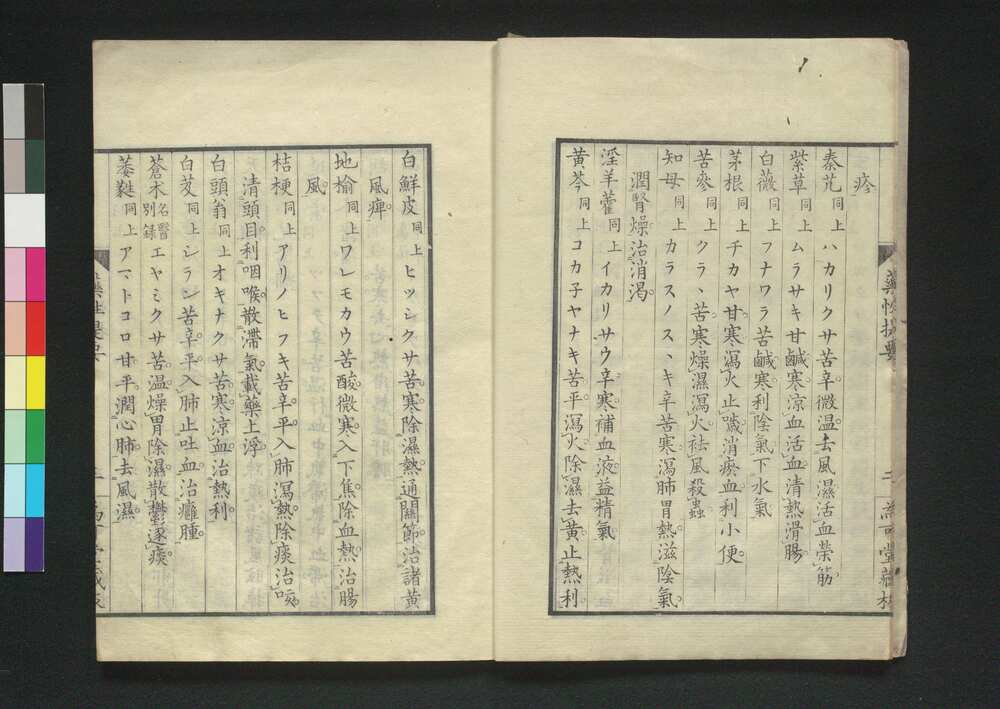 疹
秦艽 同上 ハカリクサ苦辛微温去風濕活血榮筋
紫草 同上 ムラサキ甘鹹寒涼血活血清熱滑腸
白薇 同上 フナワラ苦鹹寒利陰氣下水氣
茅根 同上 チカヤ甘寒瀉火止噦消瘀血利小便
苦參 同上 クラヽ苦寒燥濕瀉火袪風殺蟲
知母 同上 カラスノスヽキ辛苦寒瀉肺胃熱滋陰氣
潤腎燥治消渇
淫羊藿 同上 イカリサウ辛寒補血液益精氣
黄芩 同上 コカ子ヤナキ苦平瀉火除濕去黄止熱利
藥性提要
白鮮皮 同上 ヒツシクサ苦寒除濕熱通關節治諸黄
風痺
地榆 同上 ワレモカウ苦酸微寒入下焦除血熱治腸
風
桔梗 同上 アリノヒフキ苦辛平入肺瀉熱除痰治咳
清頭目利咽喉散滯氣載藥上浮
白頭翁 同上 オキナクサ苦寒涼血治熱利
白芨 同上 シラン苦辛平入肺止吐血治癰腫
蒼朮 名醫別録 エヤミクサ苦温燥胃除濕散鬱逐痰
萎蕤 同上 アマトコロ甘平潤心肺去風濕